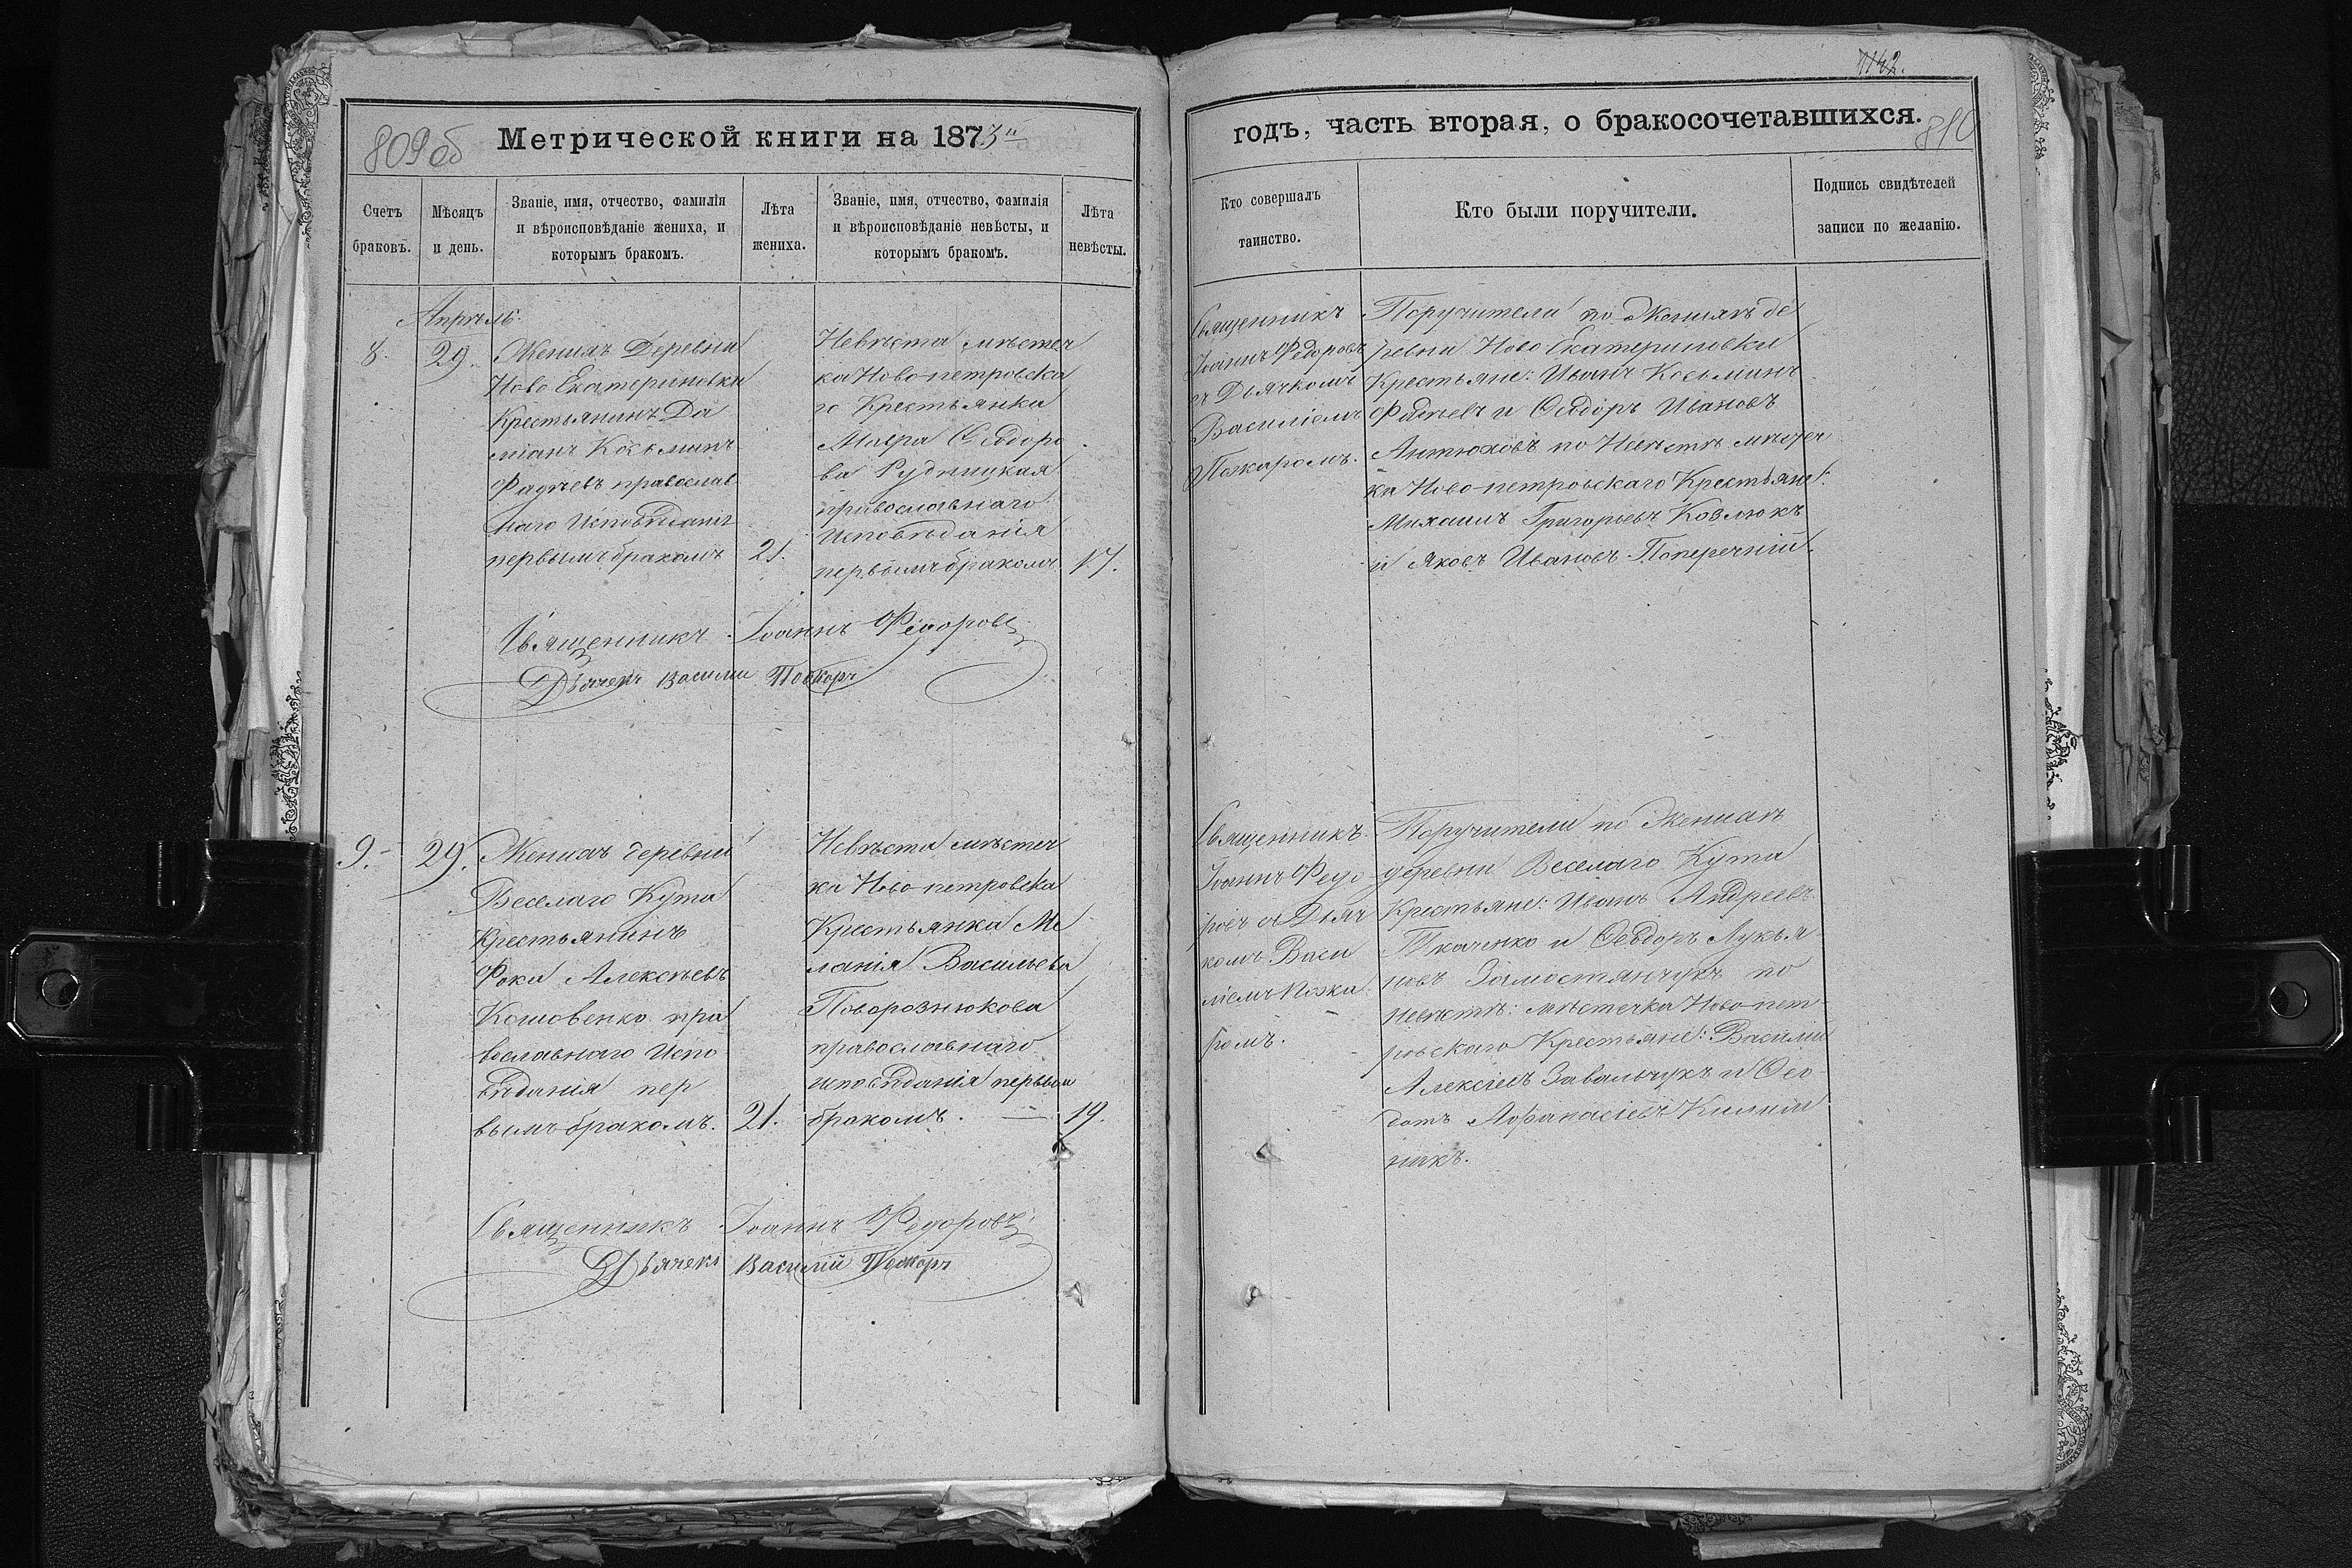 809 об
Метрической книги на 1873й
Счетъ браковъ.
Мѣсяцъ и день.
Званіе, имя, отчество, фамилія и вѣроисповѣданіе жениха, и которымъ бракомъ.
Лѣта жениха.
Званіе, имя, отчество, фамилія и вѣроисповѣданіе невѣсты, и которымъ бракомъ.
Лѣта невѣсты.
Апрѣль
8. 29.
Женихъ Деревни
Ново Екатериновки
Крестьянинъ Да
міанъ Козьминъ
Фадѣевъ православ
наго Исповѣданія
первымъ бракомъ
21.
Невѣста мѣстеч
ка Ново-петровска
го Крестьянка
Ѳеодоро
ва Рудницкая
православнаго
Исповѣданія
первымъ бракомъ
17.
Священникъ Іоаннъ Федоровъ
Дьячекъ Василий
9. 29.
Женихъ деревни
Веселаго Кута
Крестьянинъ
Фока Алексѣевъ
Кошовенко пра
вославнаго Испо
вѣданія пер
вымъ бракомъ.
21.
Невѣста мѣстеч
ка Ново-петровска
Крестьянка Ме
ланія Васильева
Поворознюкова
православнаго
исповѣданія первым
бракомъ.
19.
Священникъ Іоаннъ Федоровъ
Дьячекъ Василій
1142.
годъ, часть вторая, о бракосочетавшихся.
810
Кто совершалъ таинство.
Кто были поручители.
Подпись свидѣтелей записи по желанію.
Священникъ
Іоаннъ Федоровъ
съ Дьячкомъ
Василіемъ
Пожаромъ.
Поручители по Женихѣ де
ревни Ново-Екатериновки
Крестьяне: Иванъ Козьминъ
Фадѣевъ и Ѳеодоръ Ивановъ
Антюховъ по Невѣстѣ мѣстеч
ка Ново-петровскаго Крестьяне:
Михаилъ Григорьевъ Козлюкъ
и Яковъ Ивановъ Поперечній.
Священникъ
Іоаннъ Федо
ровъ съ Дьяч
комъ Васи
ліемъ Пожа
ромъ.
Поручители по Женихѣ
деревни Веселаго Кута
Крестьяне: Иванъ Андреевъ
Ткаченко и Ѳеодоръ Лукья
новъ Замостянчукъ по
невѣстѣ: мѣстечка Ново-пет
ровскаго Крестьяне: Василій
Алексіевъ Завальчукъ и Ѳео
дотъ Афанасіевъ
никъ.